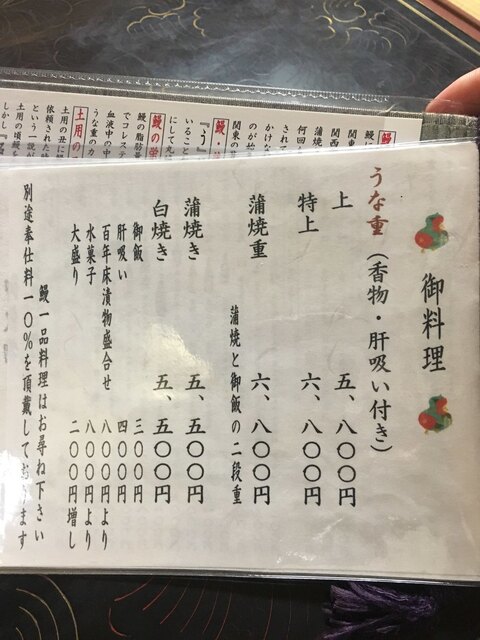 御料理
うな重（香物・肝吸い付き）
上 五、八〇〇円
特上 六、八〇〇円
蒲焼重 六、八〇〇円
蒲焼と御飯の二段重
蒲焼き 五、五〇〇円
白焼き 五、五〇〇円
御飯 三〇〇円
肝吸い 四〇〇円
百年床漬物盛合せ 八〇〇円より
水菓子 八〇〇円より
大盛り 二〇〇円増し
鰻一品料理はお尋ね下さい
別途奉仕料一〇％を頂戴しております
鰻の栄
土用の
土用の丑に鰻
依頼された時
という一説が
土用の頃鰻を